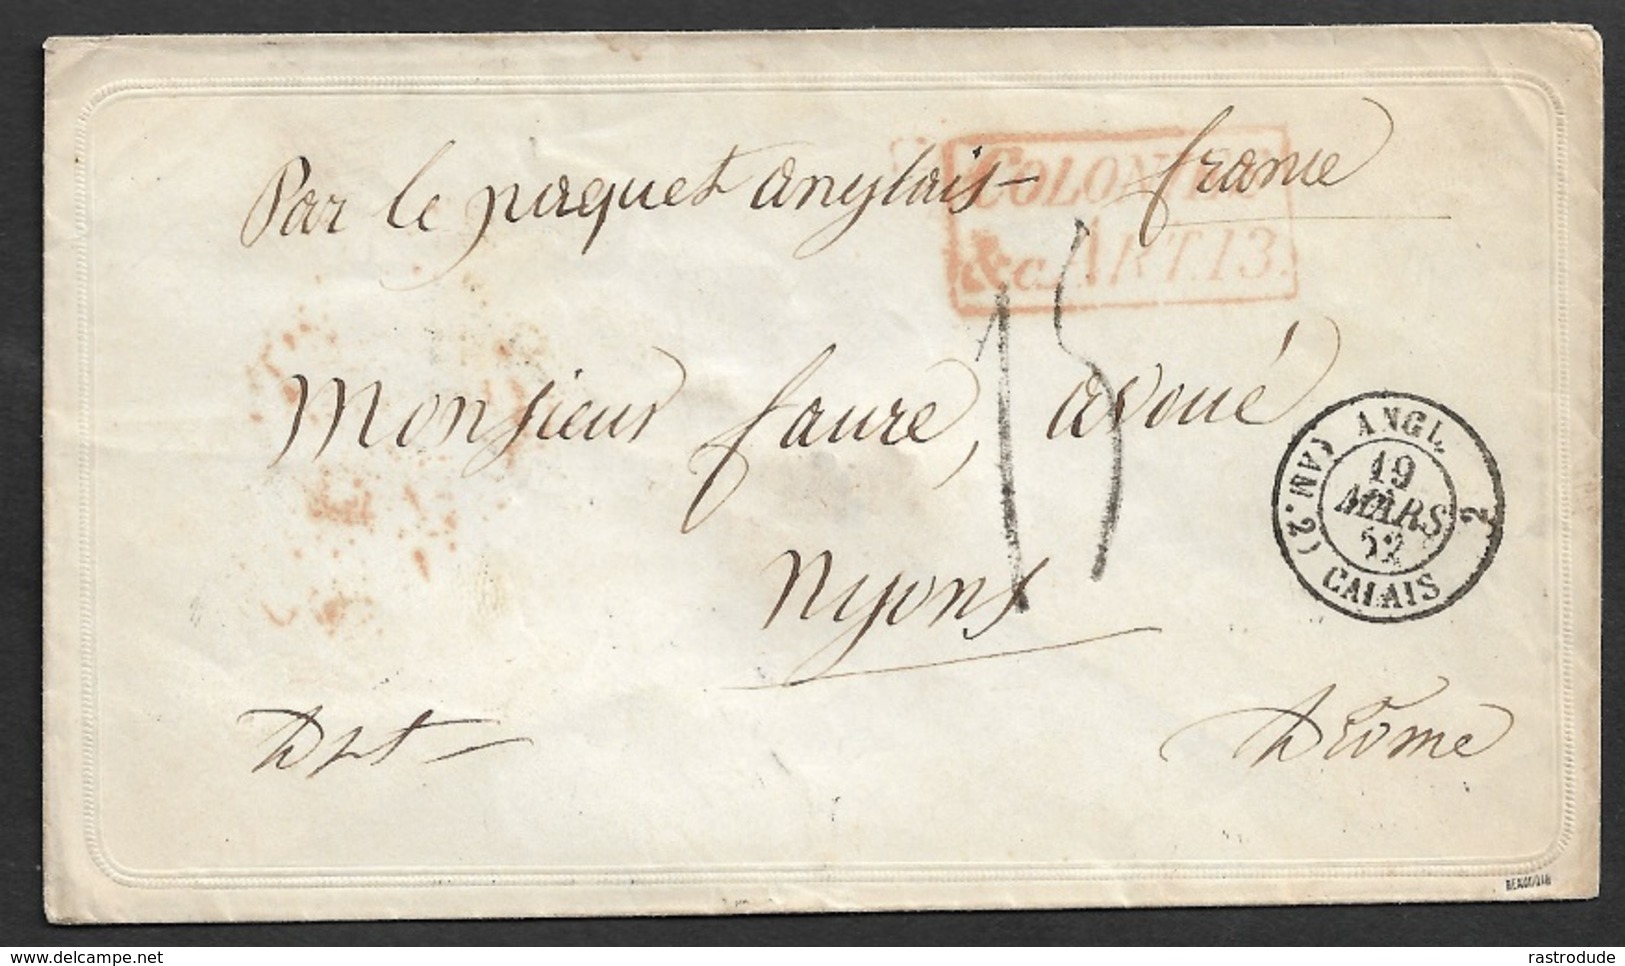 Par le paquet anglais – france
COLONIES
&c. ART. 13.
15
Monsieur faure, avoué
ANGL. 2
(AM. 2) CALAIS
19
MARS
52
Nyons
Dpt –
Drôme
BEAUDOIN
www.delcampe.net
rastrodude